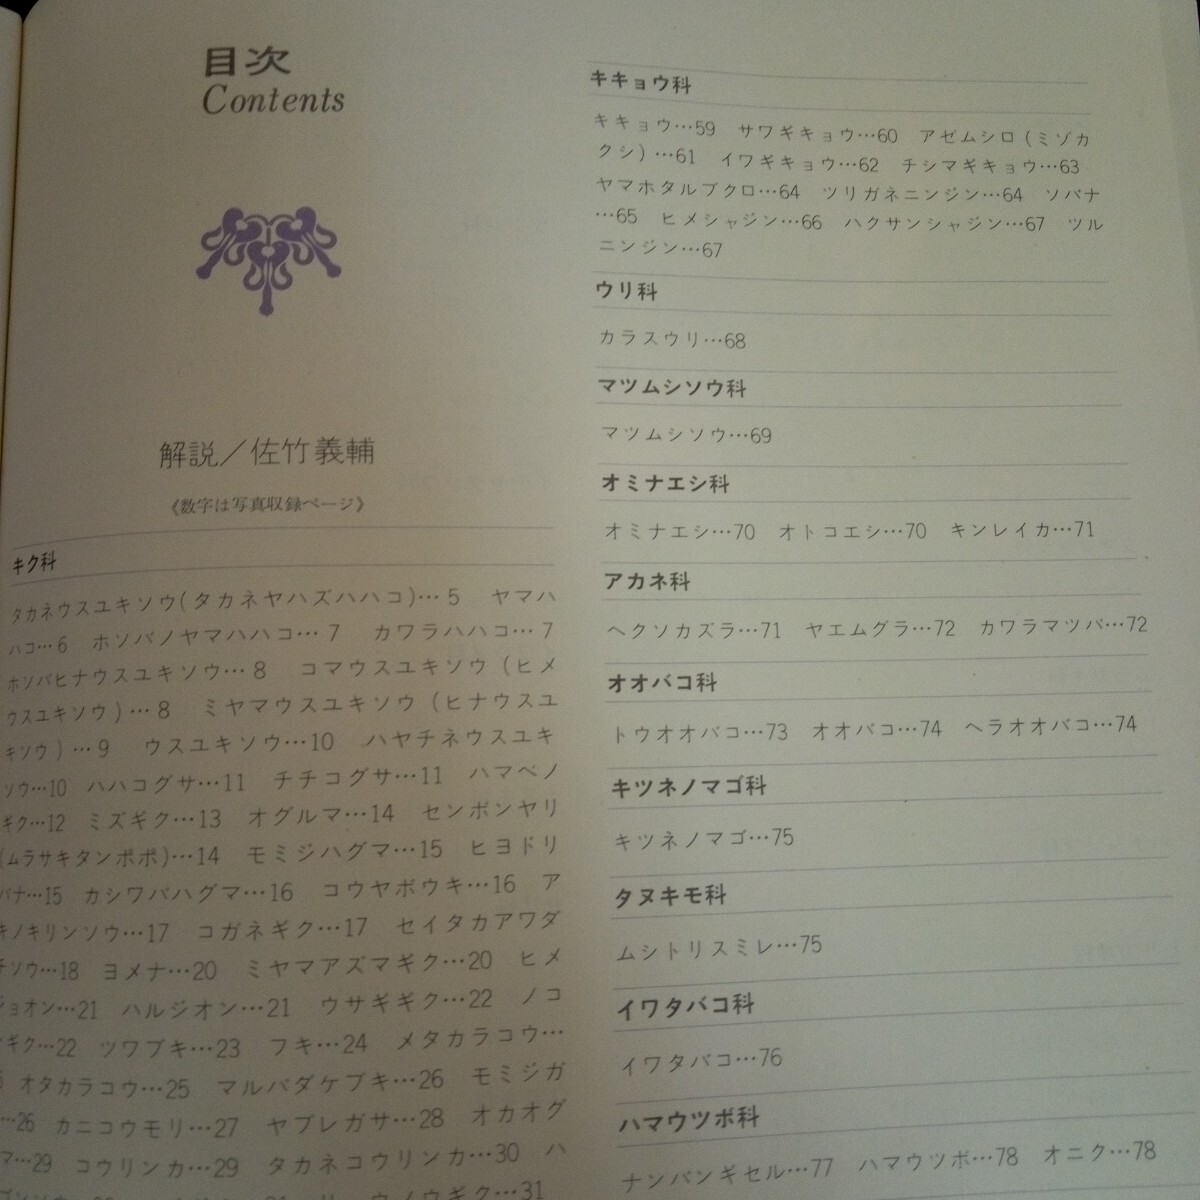 目次
Contents
解説／佐竹義輔
《数字は写真収録ページ》
キク科
タカネウスユキソウ(タカネヤハズハハコ)…5　ヤマハ
ハコ…6　ホソバノヤマハハコ…7　カワラハハコ…7
ホソバヒナウスユキソウ…8　コマウスユキソウ(ヒメ
ウスユキソウ)…8　ミヤマウスユキソウ(ヒナウスユ
キソウ)…9　ウスユキソウ…10　ハヤチネウスユキ
ソウ…10　ハハコグサ…11　チチコグサ…11　ハマベノ
ギク…12　ミズギク…13　オグルマ…14　センボンヤリ
(ムラサキタンポポ)…14　モミジハグマ…15　ヒヨドリ
バナ…15　カシワバハグマ…16　コウヤボウキ…16　ア
キノキリンソウ…17　コガネギク…17　セイタカアワダ
チソウ…18　ヨメナ…20　ミヤマアズマギク…20　ヒメ
ジョオン…21　ハルジオン…21　ウサギギク…22　ノコ
ギク…22　ツワブキ…23　フキ…24　メタカラコウ…
オタカラコウ…25　マルバダケブキ…26　モミジガ
…26　カニコウモリ…27　ヤブレガサ…28　オカオグ
マ…29　コウリンカ…29　タカネコウリンカ…30　ハ
ウノウギク…31
キキョウ科
キキョウ…59　サワギキョウ…60　アゼムシロ(ミゾカ
クシ)…61　イワギキョウ…62　チシマギキョウ…63
ヤマホタルブクロ…64　ツリガネニンジン…64　ソバナ
…65　ヒメシャジン…66　ハクサンシャジン…67　ツル
ニンジン…67
ウリ科
カラスウリ…68
マツムシソウ科
マツムシソウ…69
オミナエシ科
オミナエシ…70　オトコエシ…70　キンレイカ…71
アカネ科
ヘクソカズラ…71　ヤエムグラ…72　カワラマツバ…72
オオバコ科
トウオオバコ…73　オオバコ…74　ヘラオオバコ…74
キツネノマゴ科
キツネノマゴ…75
タヌキモ科
ムシトリスミレ…75
イワタバコ科
イワタバコ…76
ハマウツボ科
ナンバンギセル…77　ハマウツボ…78　オニク…78